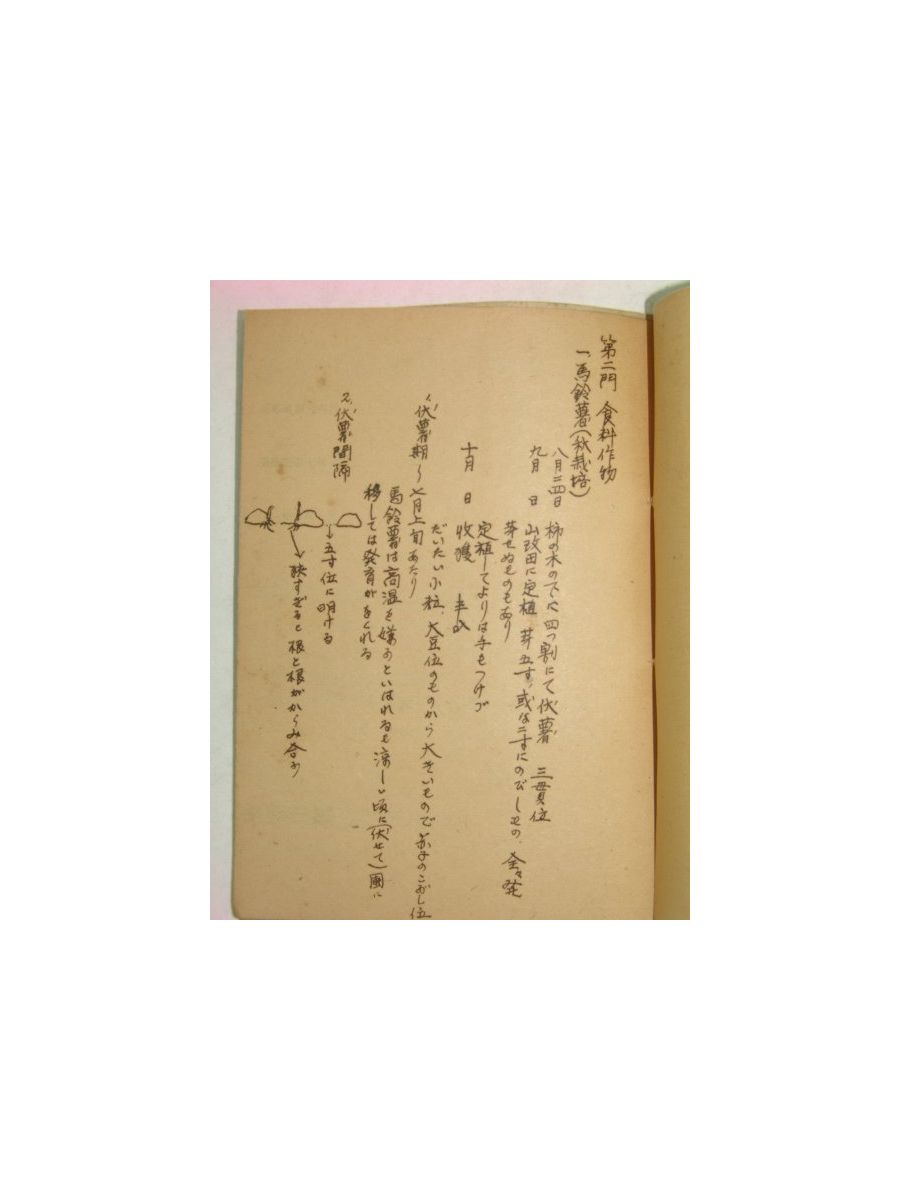 第二門 食料作物
一、馬鈴薯(秋栽培)
八月二四日 柿の木の下に四つ割にて伏薯 三貫位
九月 日 山改田に定植 芽五寸、或は二寸にのびしもの、全々発
芽せぬものもあり
定植してよりは手もつけず
十月 日 收獲 半
1、伏薯期〜七月上旬あたり
だいたい小粒、大豆位のものから大きいもので のこぶし位
馬鈴薯は高温を嫌ふといはれるも涼しい頃に(伏せて)圃に
移しては発育がをくれる
2、伏薯間隔
五寸位に明ける
狭すぎると根と根がからみ合ふ